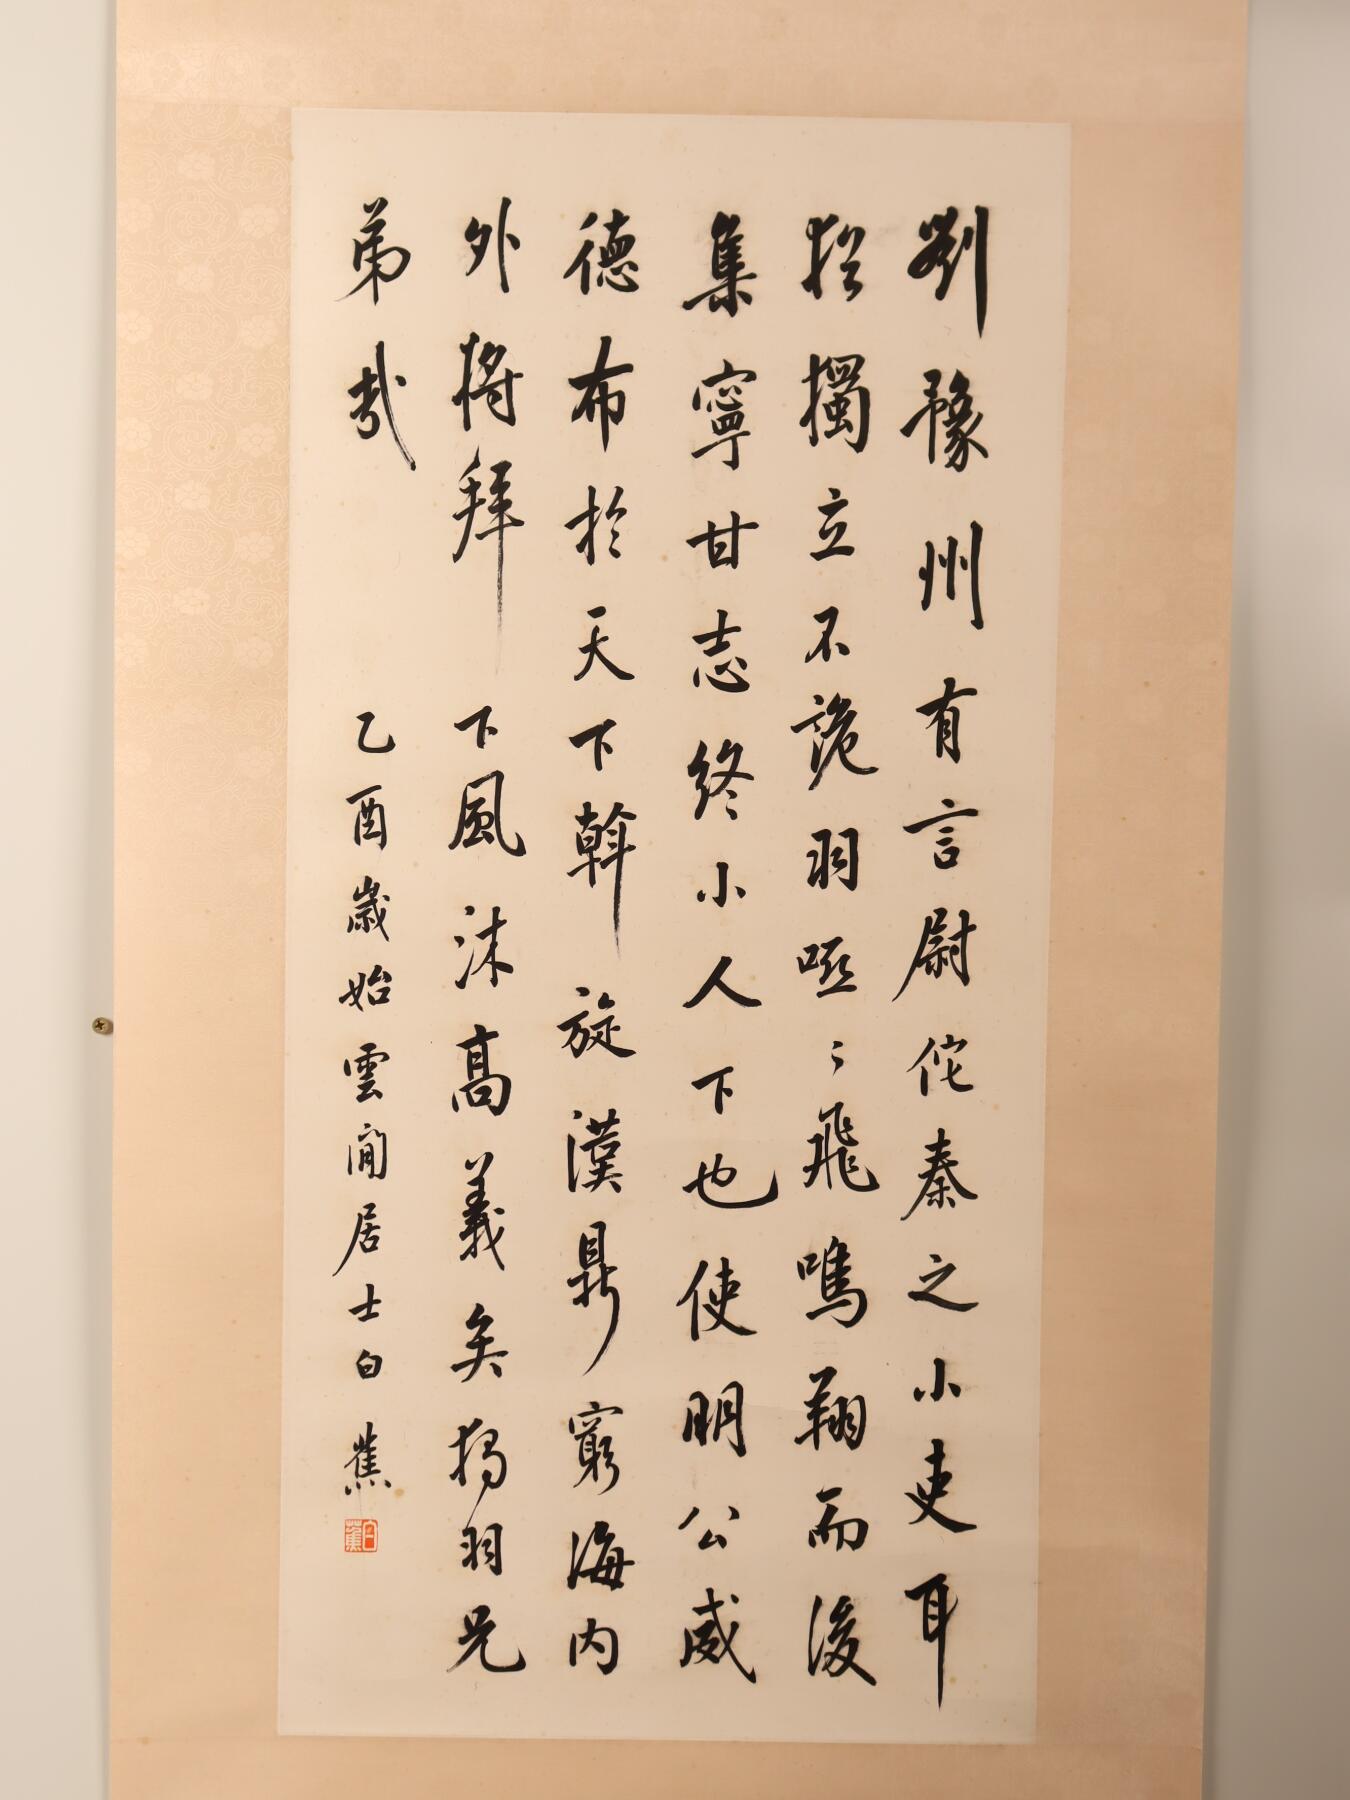 劉豫州有言尉佗秦之小吏耳
猶獨立不詭羽啞〻飛鳴翔而後
集寧甘志終小人下也使明公威
德布於天下斡旋漢鼎窮海内
外將拜下風沐高義矣獨羽兄
弟哉
乙酉歲始雲間居士白蕉
白蕉